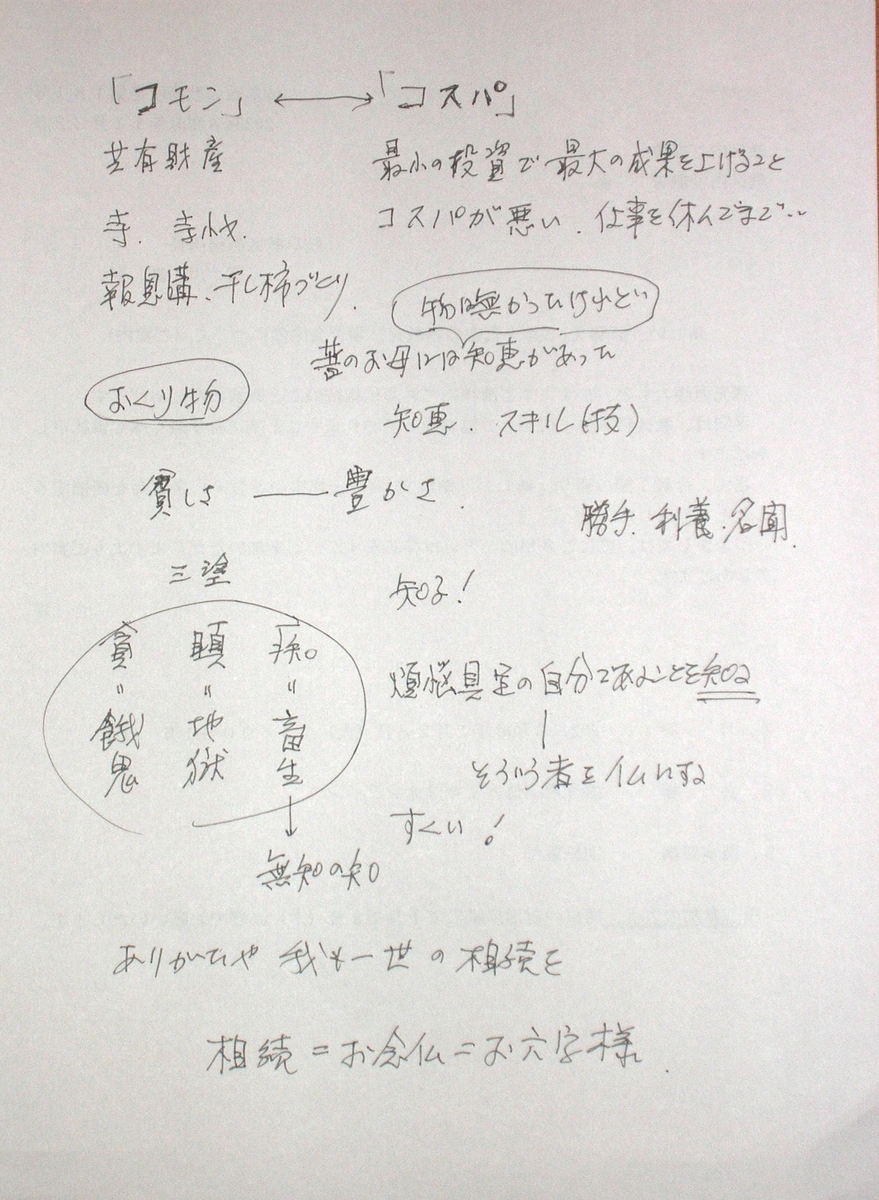 「コモン」 ←→ 「コスパ」
共有財産
最小の投資で最大の成果を上げること
寺. 寺
コスパが悪い. 仕事を休んでまで‥
報恩講、干し柿づくり.
物は無かったけれど
昔のお母には知恵があった
おくり物
知恵. スキル(技)
貧しさ ― 豊かさ.
勝手. 利養. 名聞.
三塗
知る!
貪 瞋 痴
〃 〃 〃
餓鬼 地獄 畜生
煩悩具足の自分であることを知る
そういう者を仏にする
すくい!
↓
無知の知
ありがたや 我も一世の相続を
相続=お念仏=お六字様.